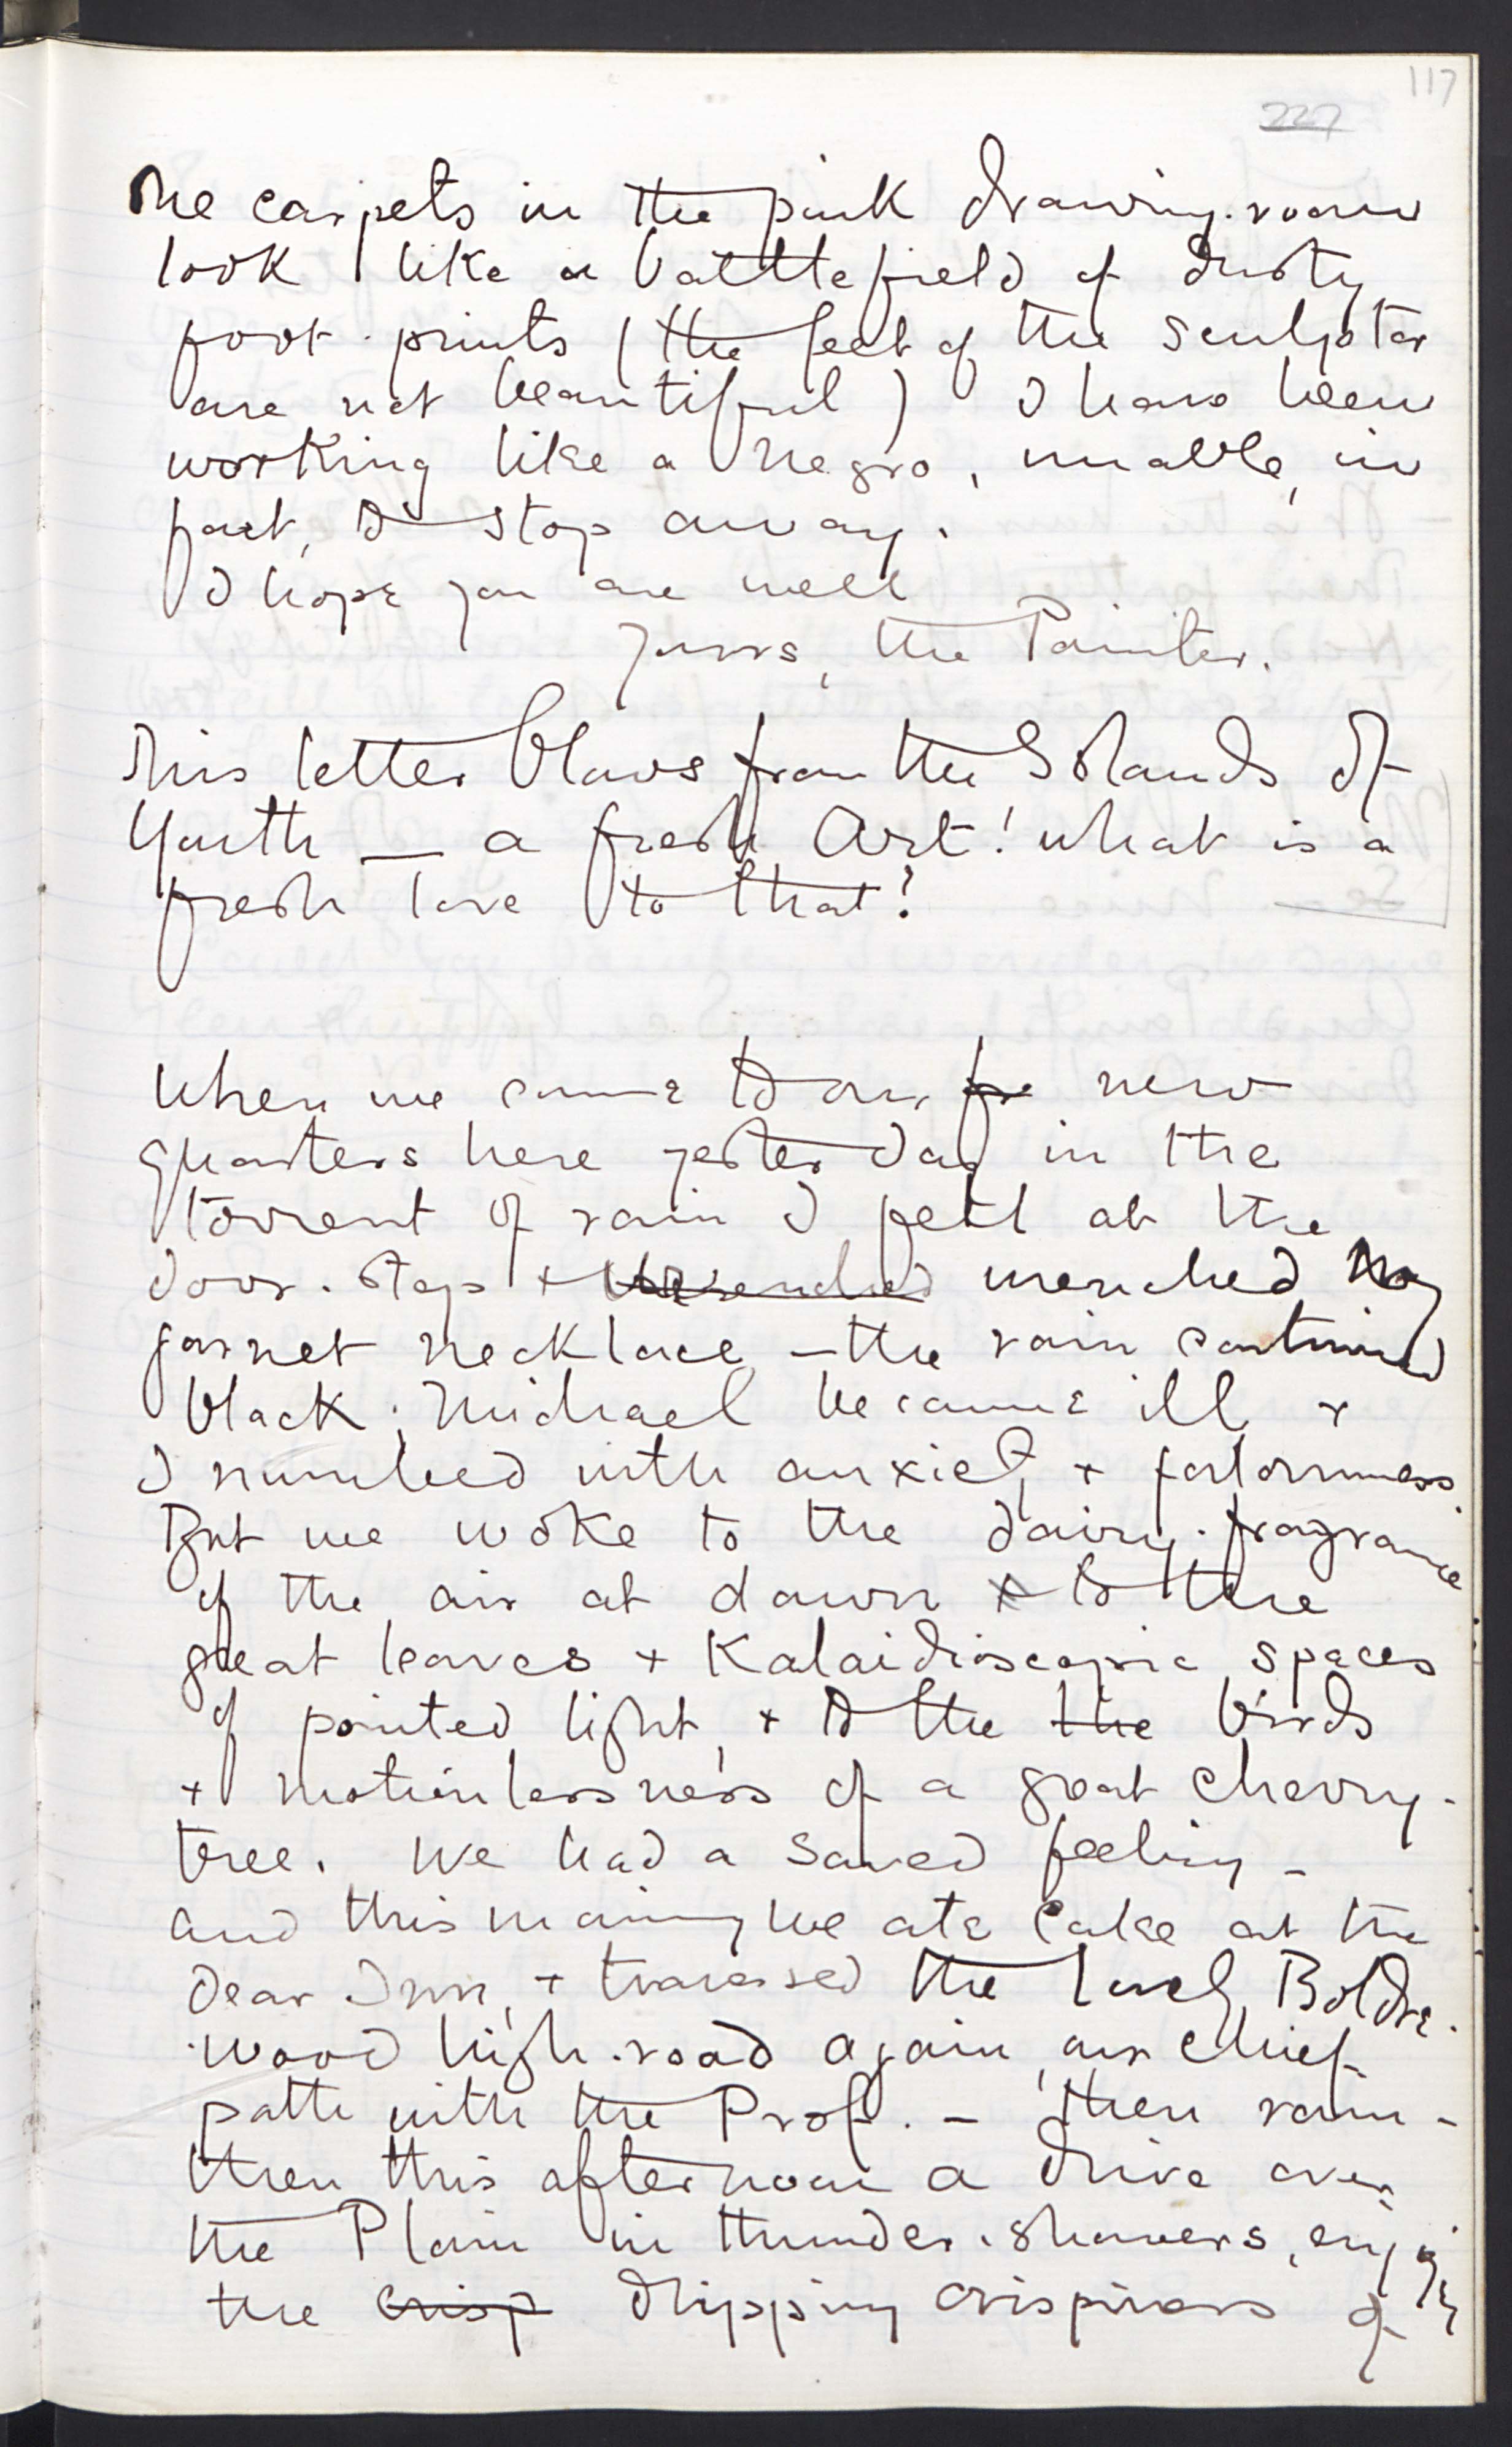 117
227
The carpets in the pink drawing-room
look like a battlefield of dusty
foot-prints (the feet of the Sculptor
are not beautiful) I have been
working like a negro, unable, in
fact, to stop away.
I hope you are well
Yours, the Painter.
This letter blows from the Islands of
Youth — a fresh Art! What is a
fresh love to that!
When we came to our fr new
quarters here yesterday in the
torrent of rain I fell at the
door-step + wrenched my
garnet necklace — the rain continued
black; Michael became ill, +
I numbed with anxiety + forlornness.
But we woke to the dairy-fragrance
of the air at dawn + to the
great leaves + Kalaidioscopic spaces
of pointed light, + to the the birds
+ motionlessness of a great cherry-
tree. We had a saved feeling —
and this morning we ate cake at the
dear Inn, + traversed the lovely Boldre-
wood high-road again, our chief
path with the Prof. — then rain —
then this afternoon a drive over
the Plain in thunder-showers, enjoying
the crisp dripping crispness of